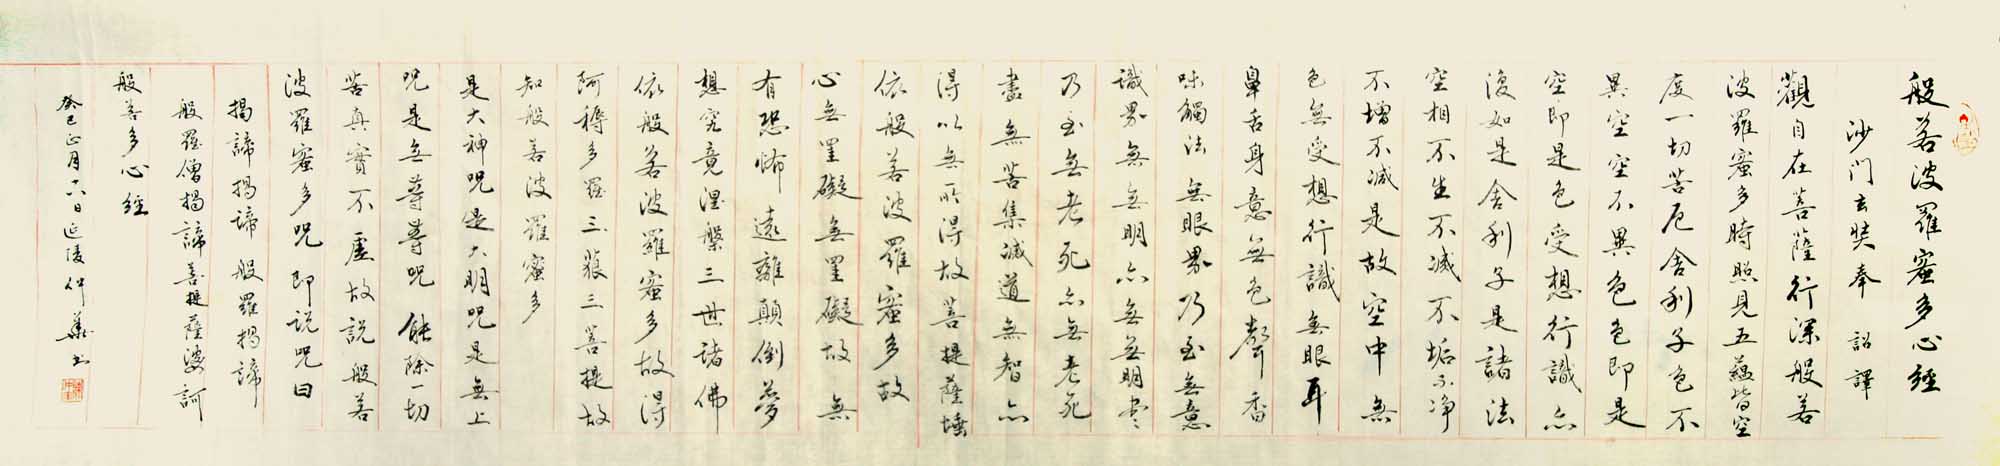 般若波羅蜜多心經
沙门玄奘奉 詔譯
觀自在菩薩行深般若
波羅蜜多時照見五蘊皆空
度一切苦厄舍利子色不
異空空不異色色即是
空即是色受想行識亦
復如是舍利子是諸法
空相不生不滅不垢不净
不增不减是故空中無
色無受想行識無眼耳
鼻舌身意無色聲香
味觸法無眼界乃至無意
識界無無明亦無無明尽
乃至無老死亦無老死
盡無苦集滅道無智亦
得以無所得故菩提薩埵
依般若波羅蜜多故
心無罣礙無罣礙故無
有恐怖遠離顛倒夢
想究竟涅槃三世諸佛
依般若波羅蜜多故得
阿耨多羅三藐三菩提故
知般若波羅蜜多
是大神咒是大明咒是無上
咒是無等等咒能除一切
苦真實不虛故説般若
波羅蜜多咒即説咒曰
揭諦揭諦般羅揭諦
般羅僧揭諦菩提薩婆訶
般若多心經
癸巳正月六日延陵仲華书